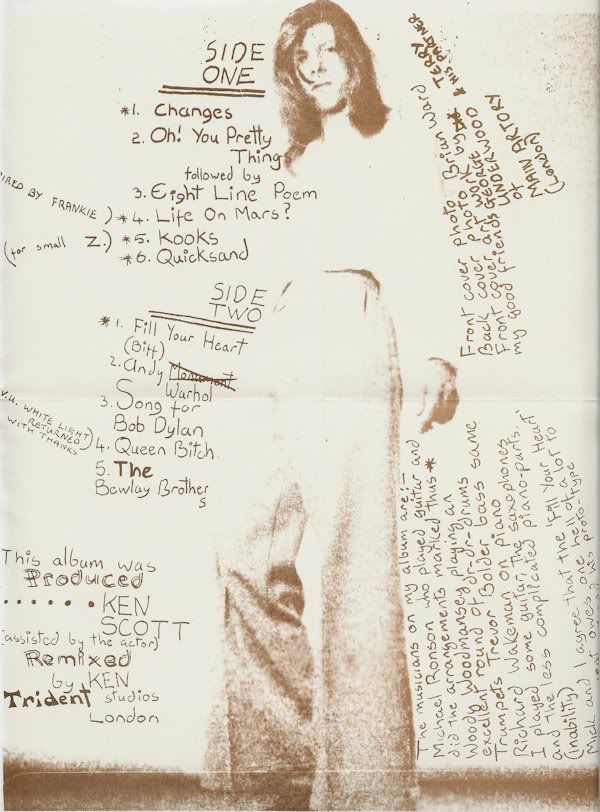 SIDE
ONE
*1. Changes
2. Oh! You Pretty
Things
followed by
3. Eight Line Poem
IRED BY FRANKIE) *4. Life On Mars?
(for small Z.) *5. Kooks
*6. Quicksand
SIDE
TWO
*1. Fill Your Heart
(Biff)
2. Andy
Warhol
3. Song for
Bob Dylan
V.U. WHITE LIGHT
RETURNED
WITH THANKS)
4. Queen Bitch
5. The
Bewlay Brother
s
This album was
Produced
. . . . . . KEN
SCOTT
(assisted by the actor)
Remixed
by KEN
Trident studios
London
Front cover photo Brian Ward
Back cover photo by
TERRY
& HIS PARTNER
Front cover artwork
my good friends
GUNDERWOOD
of
MAIN ARTORY
(London)
The musicians on my album are:-
Michael Ronson who played guitar and
did the arrangements marked thus *
Woody Woodmansey playing an
excellent round of dr-dr-drums same
Trumpets Trevor Bolder bass
Richard Wakeman on piano
I played some guitar, the saxophones
and the less complicated piano-parts.
(inability) I agree that the 'Fill Your Heart'
Mick and owes one hell of a lot to